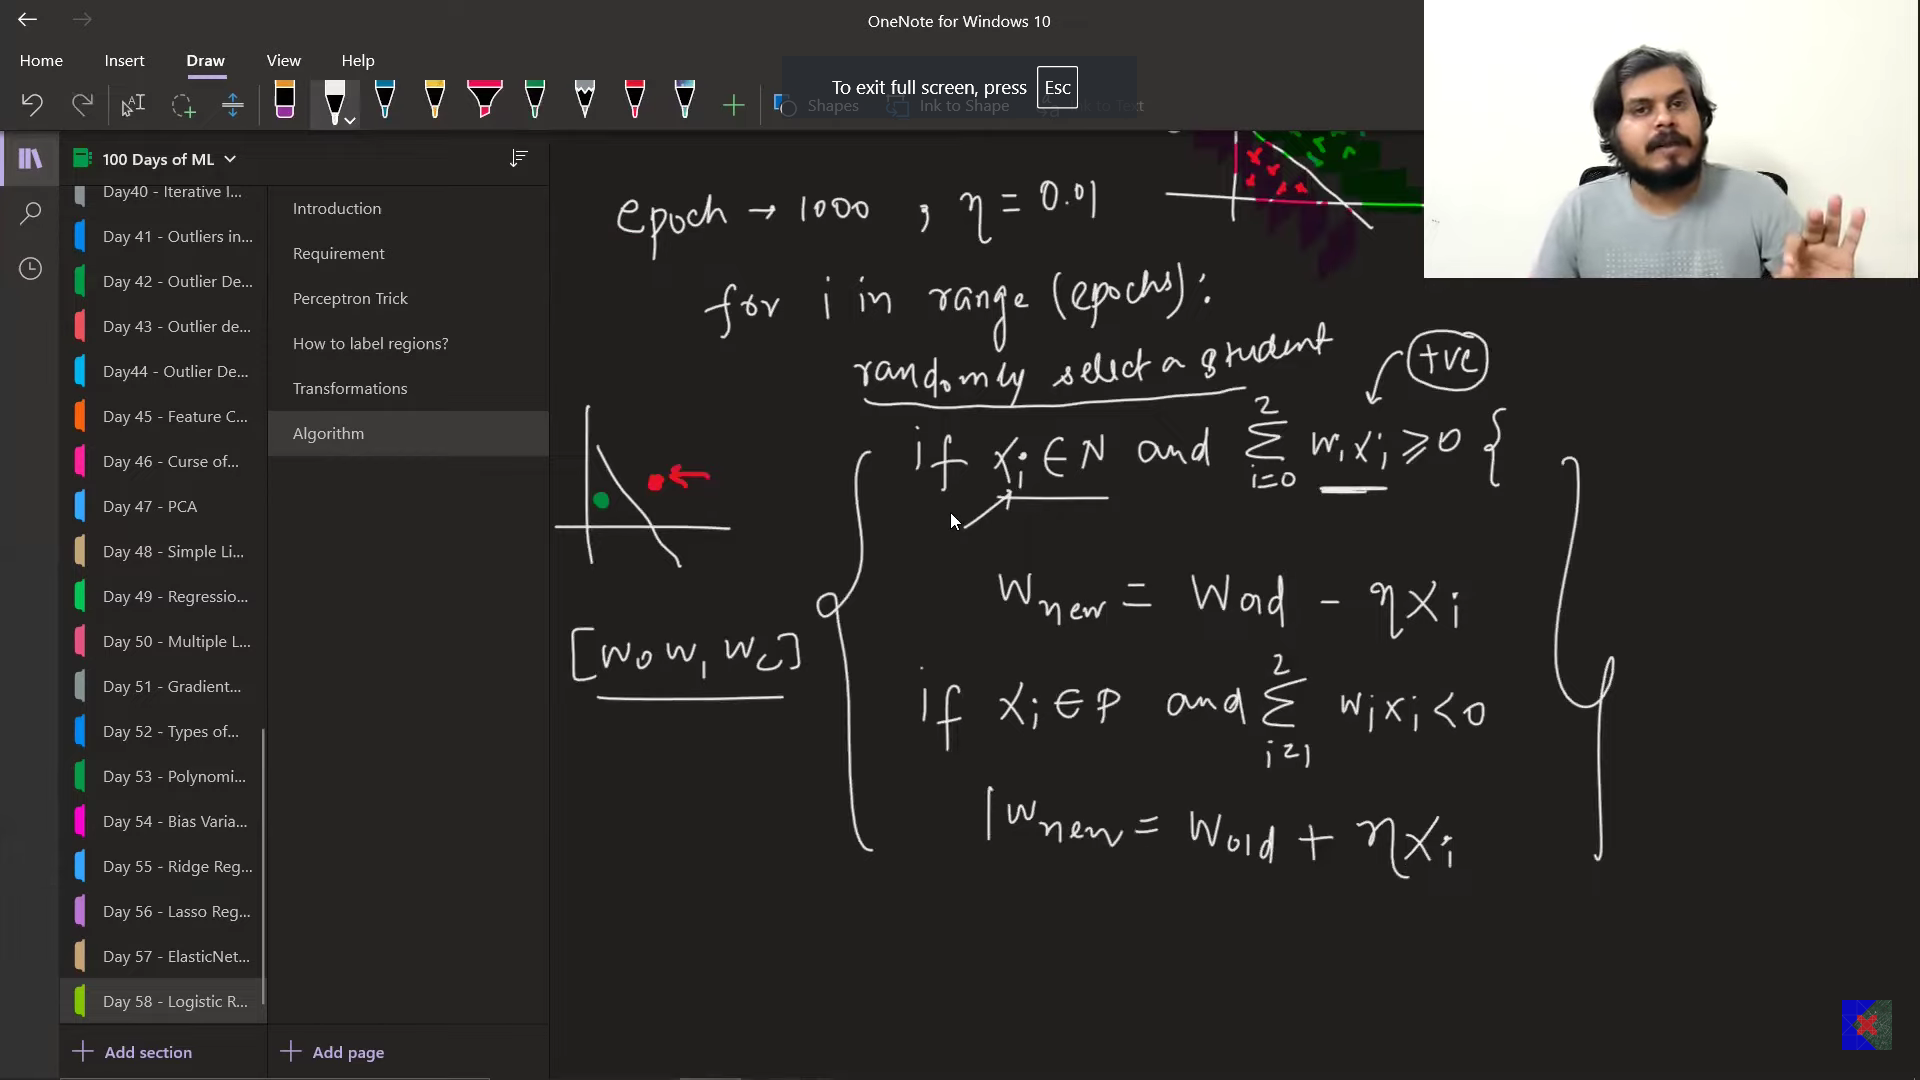 OneNote for Windows 10
Home Insert Draw View Help
To exit full screen, press Esc
Shapes Ink to Shape Ink to Text
100 Days of ML
Day40 - Iterative I...
Day 41 - Outliers in...
Day 42 - Outlier De...
Day 43 - Outlier de...
Day44 - Outlier De...
Day 45 - Feature C...
Day 46 - Curse of...
Day 47 - PCA
Day 48 - Simple Li...
Day 49 - Regressio...
Day 50 - Multiple L...
Day 51 - Gradient...
Day 52 - Types of...
Day 53 - Polynomi...
Day 54 - Bias Varia...
Day 55 - Ridge Reg...
Day 56 - Lasso Reg...
Day 57 - ElasticNet...
Day 58 - Logistic R...
Add section
Introduction
Requirement
Perceptron Trick
How to label regions?
Transformations
Algorithm
Add page
epoch → 1000 , η = 0.01
for i in range (epochs):
randomly select a student
+ve
if xi ∈ N and Σ i=0 2 wixi ≥ 0 {
wnew = wold - ηxi
[w0 w1 w2]
if xi ∈ P and Σ i=1 2 wixi < 0
wnew = wold + ηxi